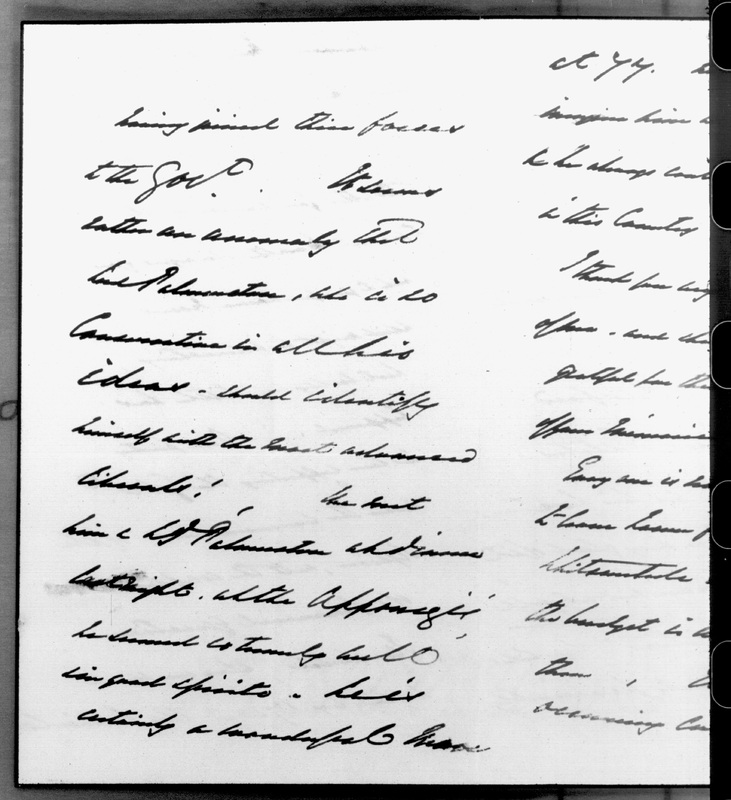 having joined their forces
to the Govt. It seems
rather an anomaly that
Lord Palmerston, who is so
Conservative in all his
ideas - should identify
himself with the most advanced
Liberals! We met
him & Ly Palmerston at dinner
last night. at the Apponyi's
he seemed tremely well
in good spirits - he is
certainly a wonderful Man
at 77.
imagine him
he always
in this Country
I thank you
offer - and
grateful for the
offer
Every one is
to leave town
Whitsuntide
the budget is
them,
occurring